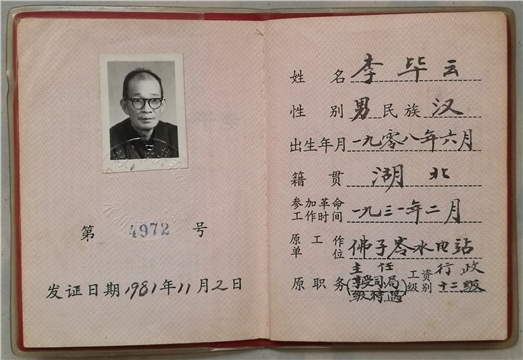 第 4972 号
发证日期 1981年11月2日
姓 名 李毕云
性 别 男 民族 汉
出生年月 一九零八年六月
籍 贯 湖北
参加革命工作时间 一九三一年二月
原工作单位 佛子岑水电站
原职务 主任(享受司局级待遇) 工资级别 行政十二级